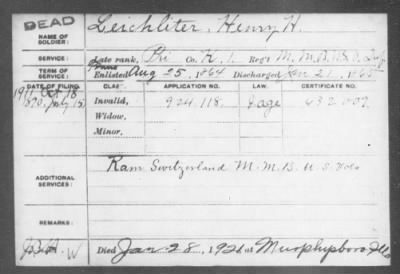 DEAD
NAME OF SOLDIER: Leichliter, Henry H.
SERVICE: Late rank, Pri Co. K, 1 Reg't M. M. B. U.S. Inf
TERM OF SERVICE: Enlisted Aug 25, 1864 Discharged Jan 21, 1865
DATE OF FILING. CLASS. APPLICATION NO. LAW. CERTIFICATE NO.
1890, July 15 Invalid, 924 118. 432 009
Widow,
Minor,
ADDITIONAL SERVICES: Ram Switzerland M. M. B. U S Vols
REMARKS:
Died Jan 28, 1921 at Murphysboro Ills